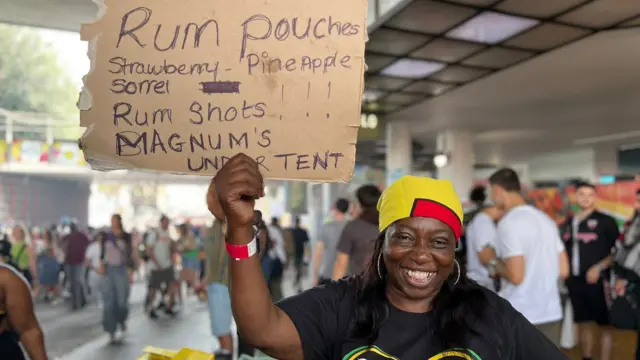 Rum pouches
Strawberry - PineApple
Sorrel
Rum Shots !!!
MAGNUM'S
UNDER TENT